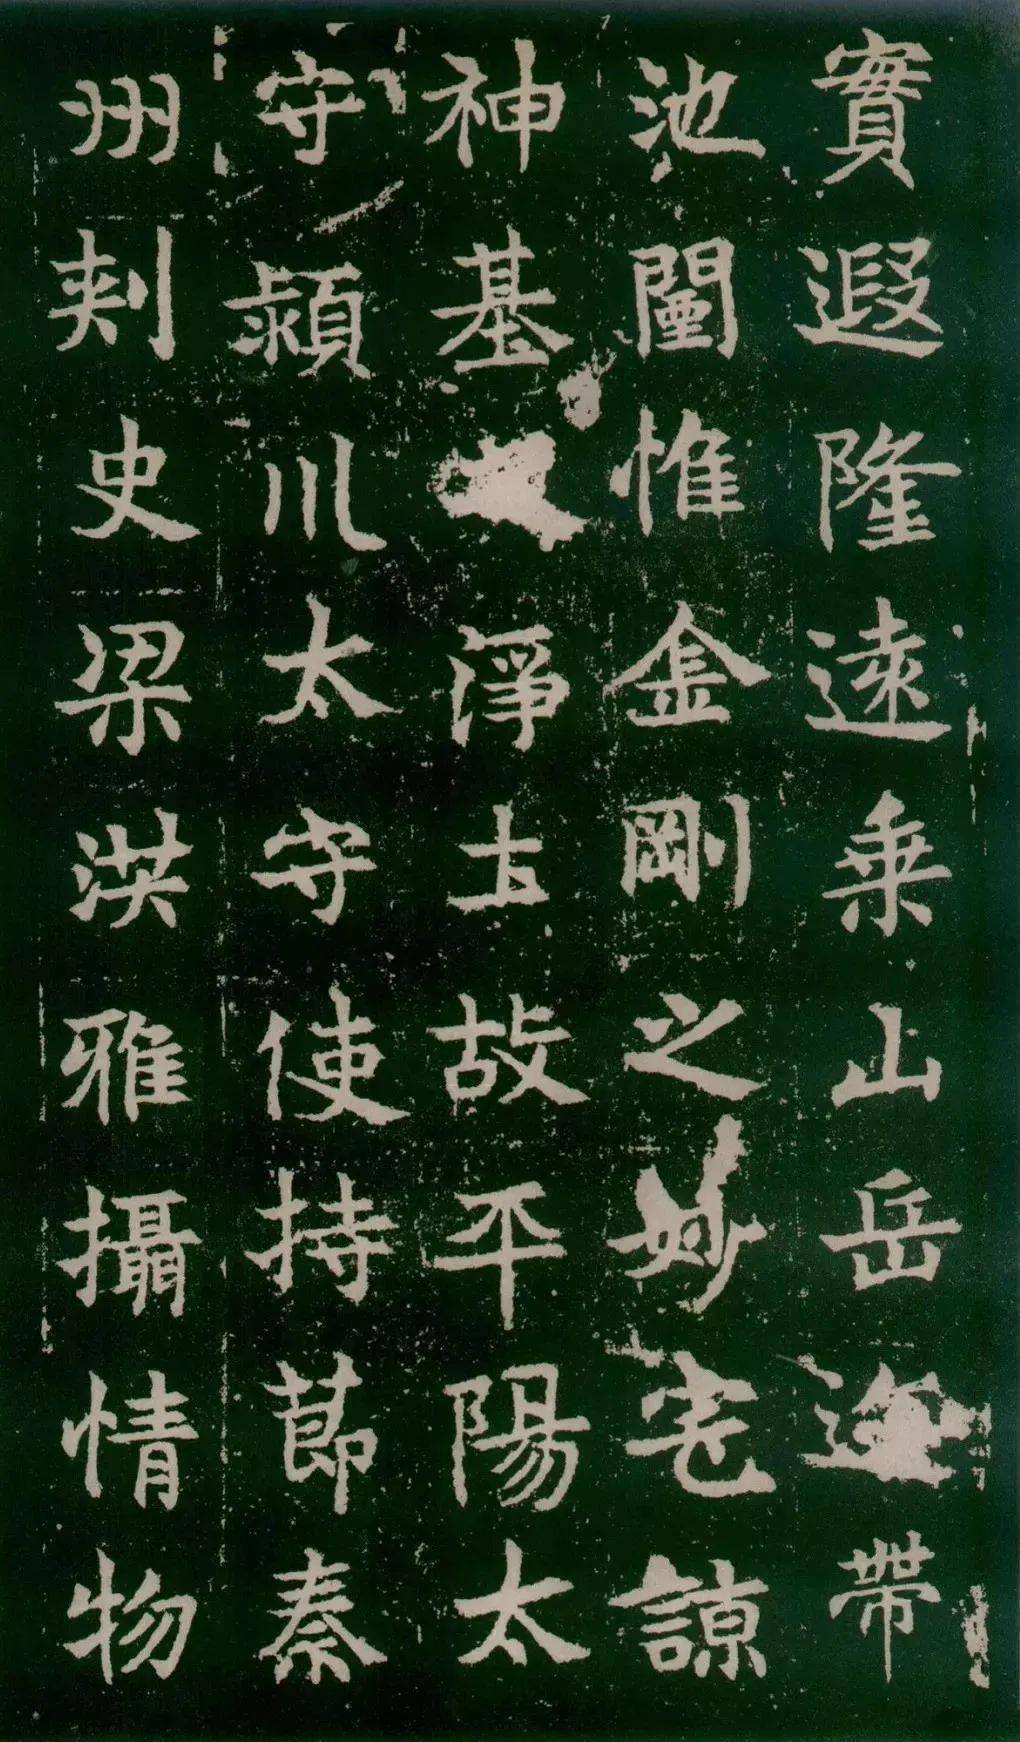 實遐隆遠乘山岳帶
池闉惟金剛之妙宅諒
神基淨土故平陽太
守潁川太守使持節秦
州刺史梁洪雅攝情物